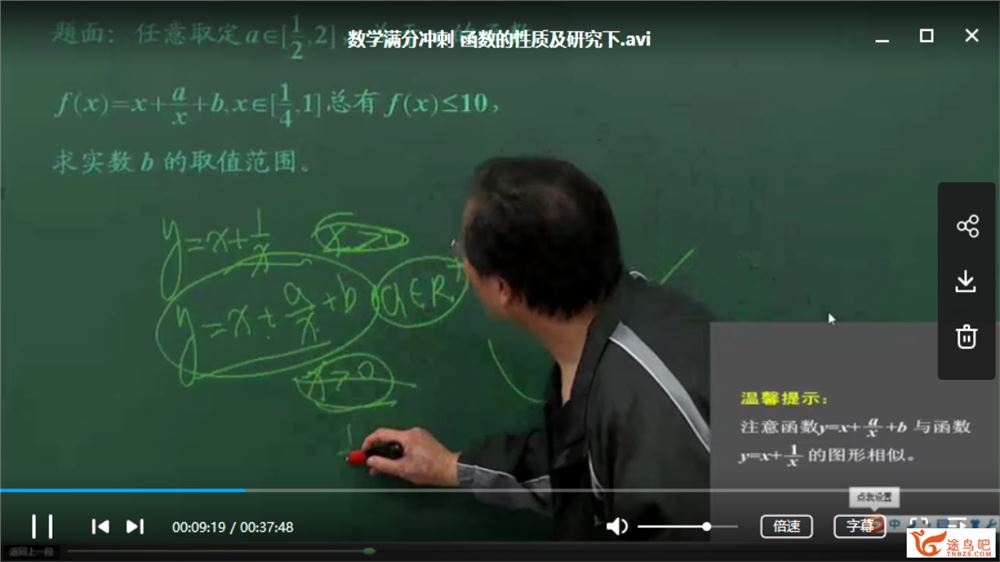 数学满分冲刺 函数的性质及研究下.avi
题面：任意取定a∈[1/2,2]
f(x)=x+a/x+b,x∈[1/4,1]总有f(x)≤10，
求实数b的取值范围。
y=x+1/x x>0
y=x+a/x+b a∈R⁺
x>0
温馨提示：
注意函数y=x+a/x+b与函数
y=x+1/x的图形相似。
点我设置
00:09:19 / 00:37:48
倍速
字幕
中
返回上一段
途鸟吧
TNBZS.COM